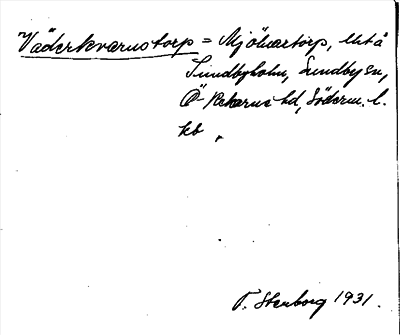 Väderkvarnstorp = Mjölnartorp, lht å
Sundbyholm, Sundby sn,
Ö-Rekarne hd, Söderm. l.
kb.
T. Stenborg 1931.